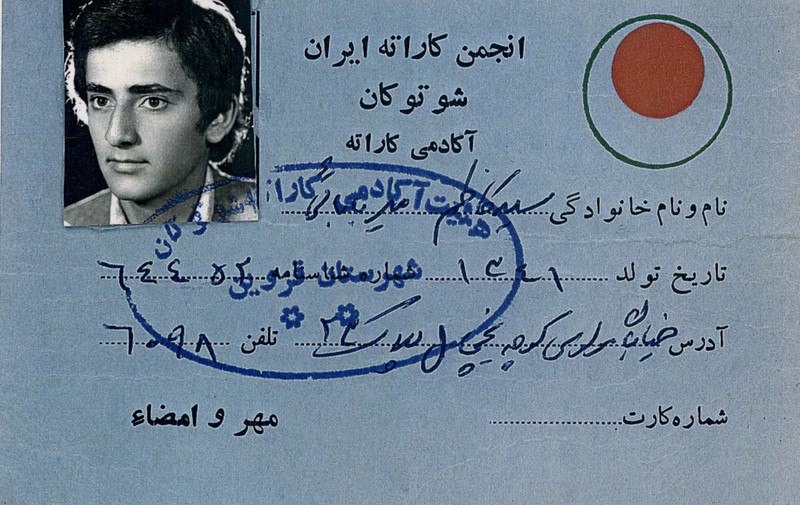 انجمن کاراته ایران
شوتوکان
آکادمی کاراته
نام و نام خانوادگی سید کاظم
تاریخ تولد ۱۳۴۱ شماره شناسنامه
آدرس خیابان کوچه پلاک تلفن ۶۰۹۸
شماره کارت مهر و امضاء
هیئت آکادمی کاراته شوتوکان
شهرستان قزوین